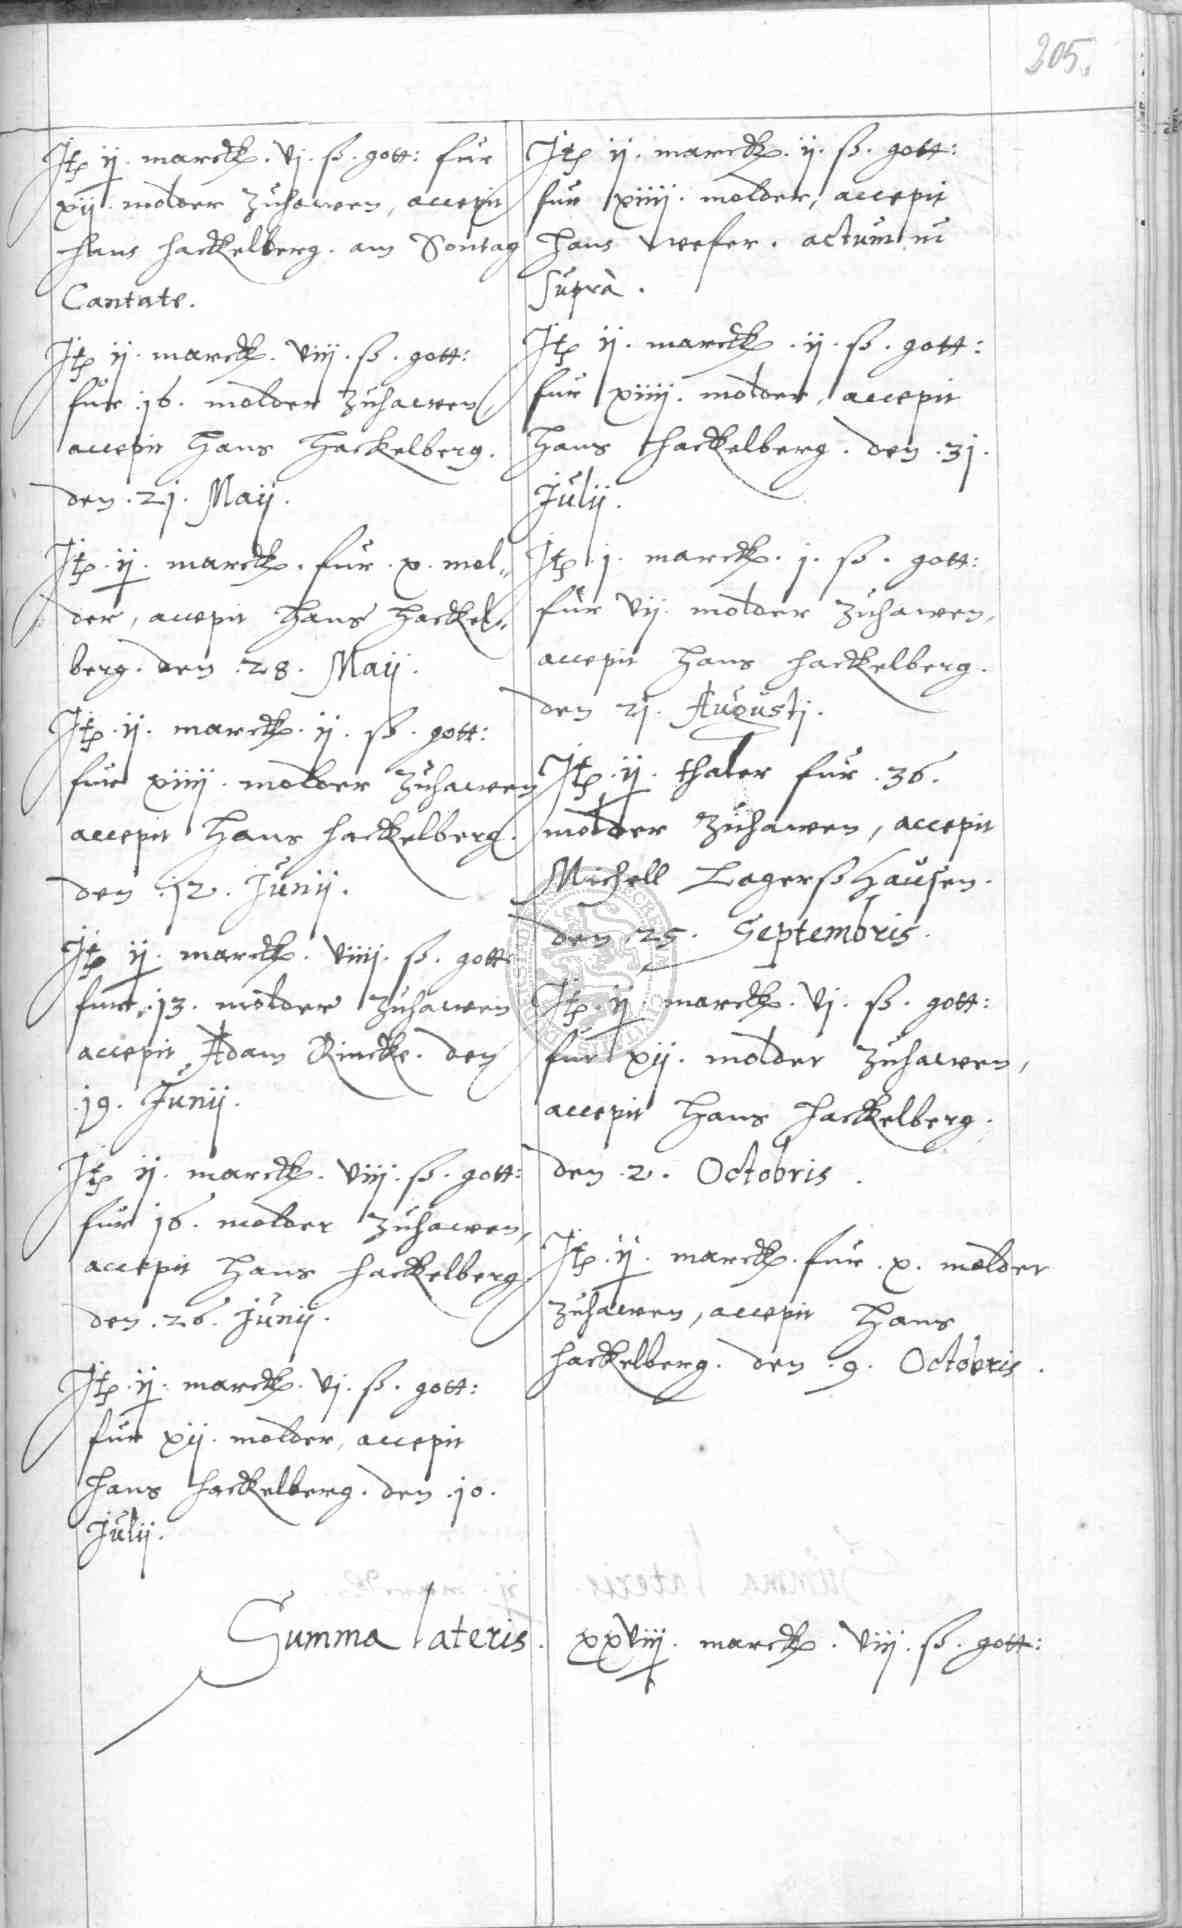 205.
Itp ij. marck. vj. ß. gott: fur
xij. molder zuhawen, accepit
Hans Hackelberg. am Sontag
Cantate.
Itp ij. marck. viij. ß. gott:
fur .16. molder zuhawen
accepit Hans Hackelberg.
den .21. Maij.
Itp. ij. marck. fur. x. mol„
der, accepit Hans Hackel„
berg. den .28. Maij.
Itp. ij. marck. ij. ß. gott:
fur xiiij. molder zuhawen
accepit Hans Hackelberg.
den .12. Junij.
Itp ij. marck. viiij. ß. gott:
fur .13. molder zuhawen
accepit Adam Rincke. den
.19. Junij.
Itp ij. marck. viij. ß. gott:
fur 16. molder zuhawen,
accepit Hans Hackelberg
den .26. Junij.
Itp. ij. marck. vj. ß. gott:
fur xij. molder, accepit
Hans Hackelberg. den .10.
Julij.
Itp ij. marck. ij. ß. gott:
fur xiiij. molder, accepit
Hans Wefer. actum ut
supra.
Itp ij. marck. ij. ß. gott:
fur xiiij. molder, accepit
Hans Hackelberg. den .31.
Julij.
Itp .j. marck. j. ß. gott:
fur vij. molder zuhawen,
accepit Hans Hackelberg.
den 21. Augustj.
Itp. ij. thaler fur .36.
molder zuhawen, accepit
Michell Lagerßhausen.
den 25. Septembris.
Itp. ij. marck. vj. ß. gott:
fur xij. molder zuhawen,
accepit Hans Hackelberg.
den .2. Octobris.
Itp. ij. marck. fur .x. molder
zuhawen, accepit Hans
Hackelberg. den .9. Octobris.
Summa lateris. xxviij. marck. viij. ß. gott: